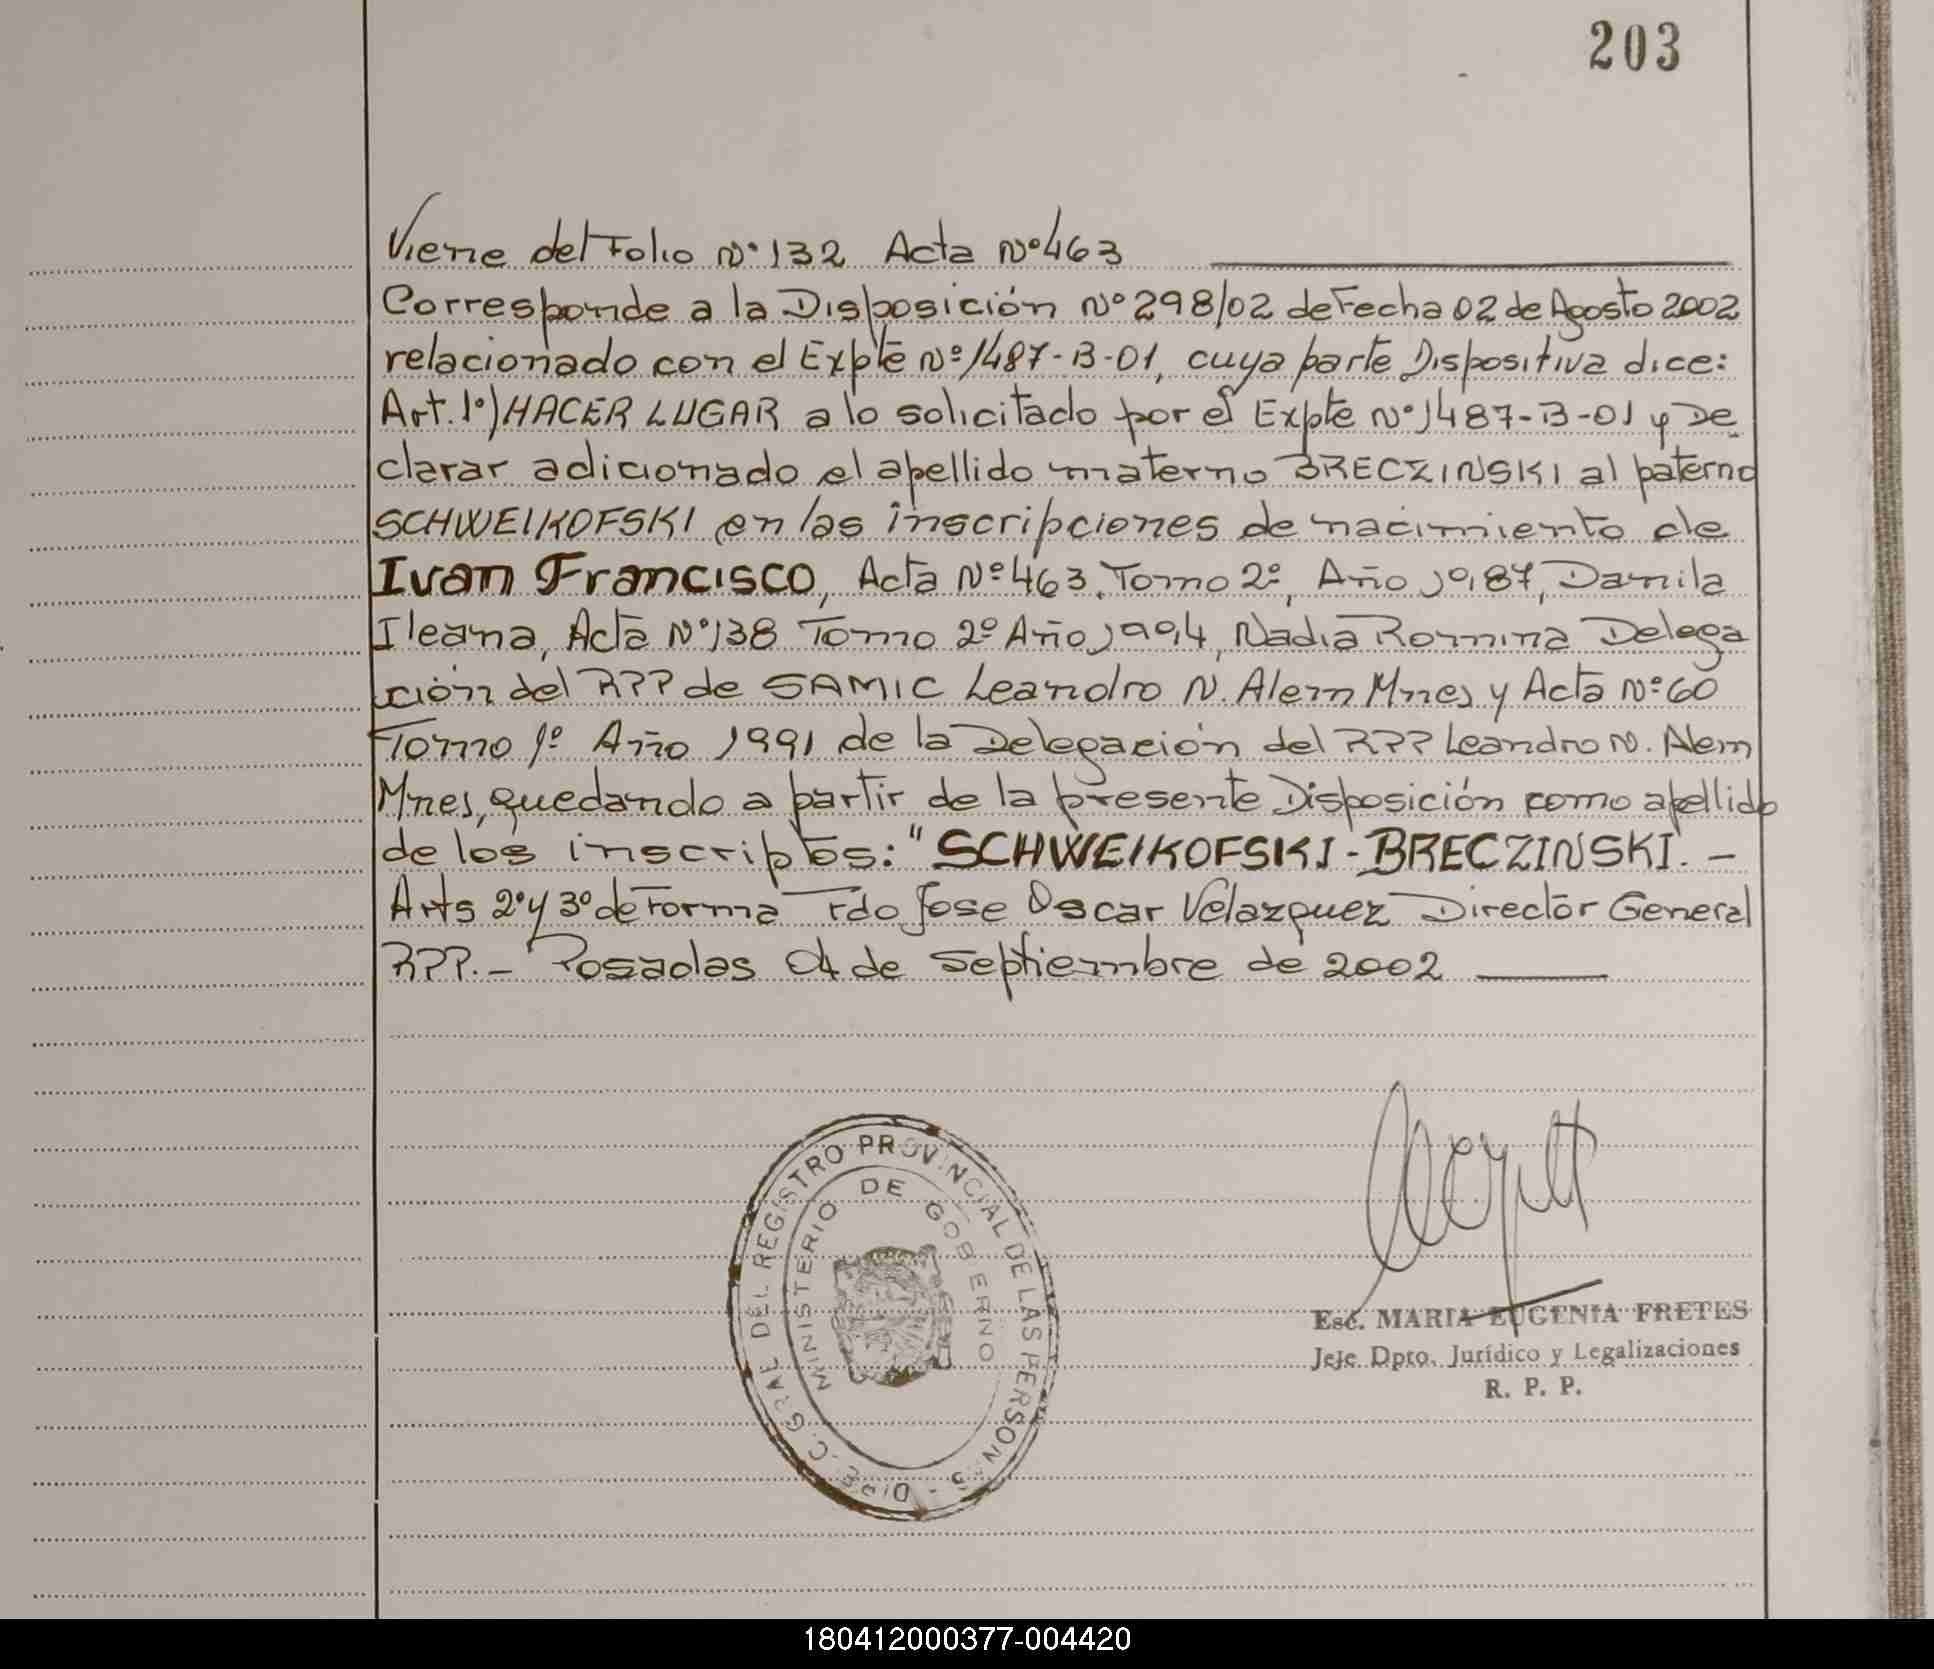 203
Viene del Folio Nº 132 Acta Nº 463
Corresponde a la Disposición Nº 298/02 de Fecha 02 de Agosto 2002
relacionado con el Expte Nº 1487-B-01, cuya parte Dispositiva dice:
Art. 1º) HACER LUGAR a lo solicitado por el Expte Nº 1487-B-01 y De
clarar adicionado el apellido materno BRECZINSKI al paterno
SCHWEIKOFSKI en las inscripciones de nacimiento de
Ivan Francisco, Acta Nº 463. Tomo 2º, Año 1987, Danila
Ileana, Acta Nº 138 Tomo 2º Año 1994, Nadia Romina Delega
ción del RPP de SAMIC Leandro N. Alem Mnes y Acta Nº 60
Tomo 1º Año 1991 de la Delegación del RPP Leandro N. Alem
Mnes, quedando a partir de la presente Disposición como apellido
de los inscriptos: "SCHWEIKOFSKI - BRECZINSKI. -
Arts 2º y 3º de Forma Fdo Jose Oscar Velazquez Director General
RPP. - Posadas 04 de Septiembre de 2002
DIREC. GRAL DEL REGISTRO PROVINCIAL DE LAS PERSONAS -
MINISTERIO DE GOBIERNO
Esc. MARIA EUGENIA FRETES
Jefe Dpto. Jurídico y Legalizaciones
R. P. P.
180412000377-004420